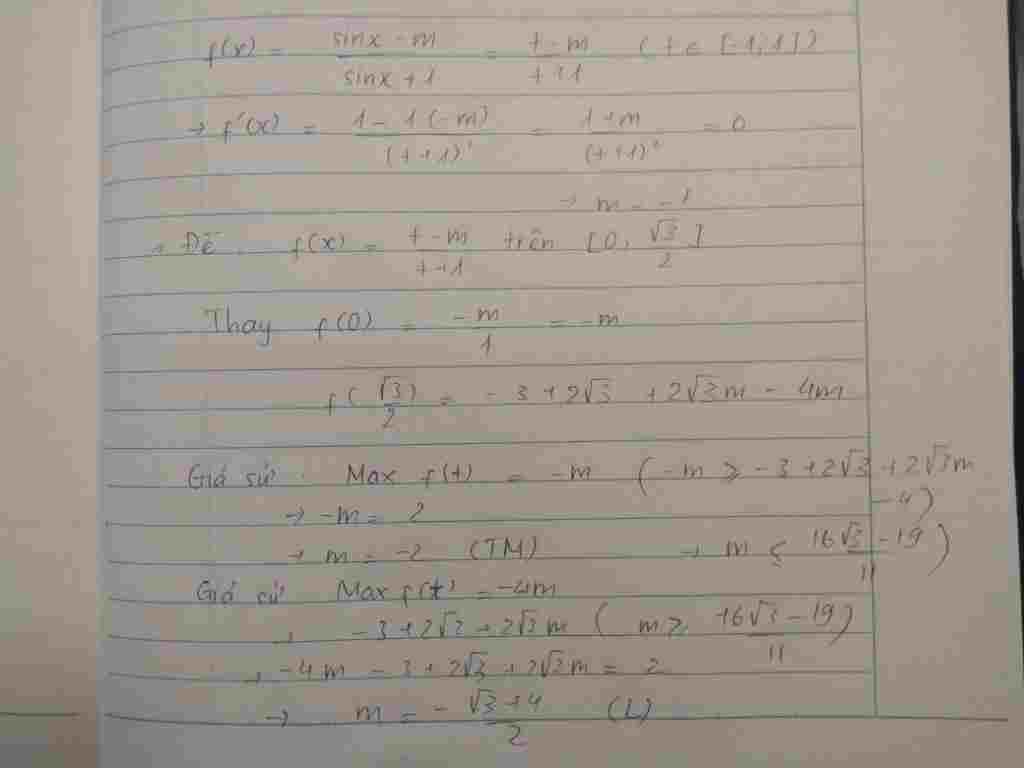 f(x) = (sinx - m)/(sinx + 1) = (t - m)/(t + 1) (t ∈ [-1; 1])
→ f'(x) = (1 - 1(-m))/(t + 1)² = (1 + m)/(t + 1)² = 0
→ m = -1
Để f(x) = (t - m)/(t + 1) trên [0; √3/2]
Thay f(0) = -m/1 = -m
f(√3/2) = -3 + 2√3 + 2√3m - 4m
Giả sử Max f(t) = -m (-m ⩾ -3 + 2√3 + 2√3m
- 4)
→ -m = 2
→ m = -2 (TM) → m ⩽ (16√3 - 19)/11)
Giả sử Max f(t) = -4m
- 3 + 2√3 + 2√3m (m ⩾ (16√3 - 19)/11)
→ -4m - 3 + 2√3 + 2√3m = 2
→ m = -(√3 + 4)/2 (L)